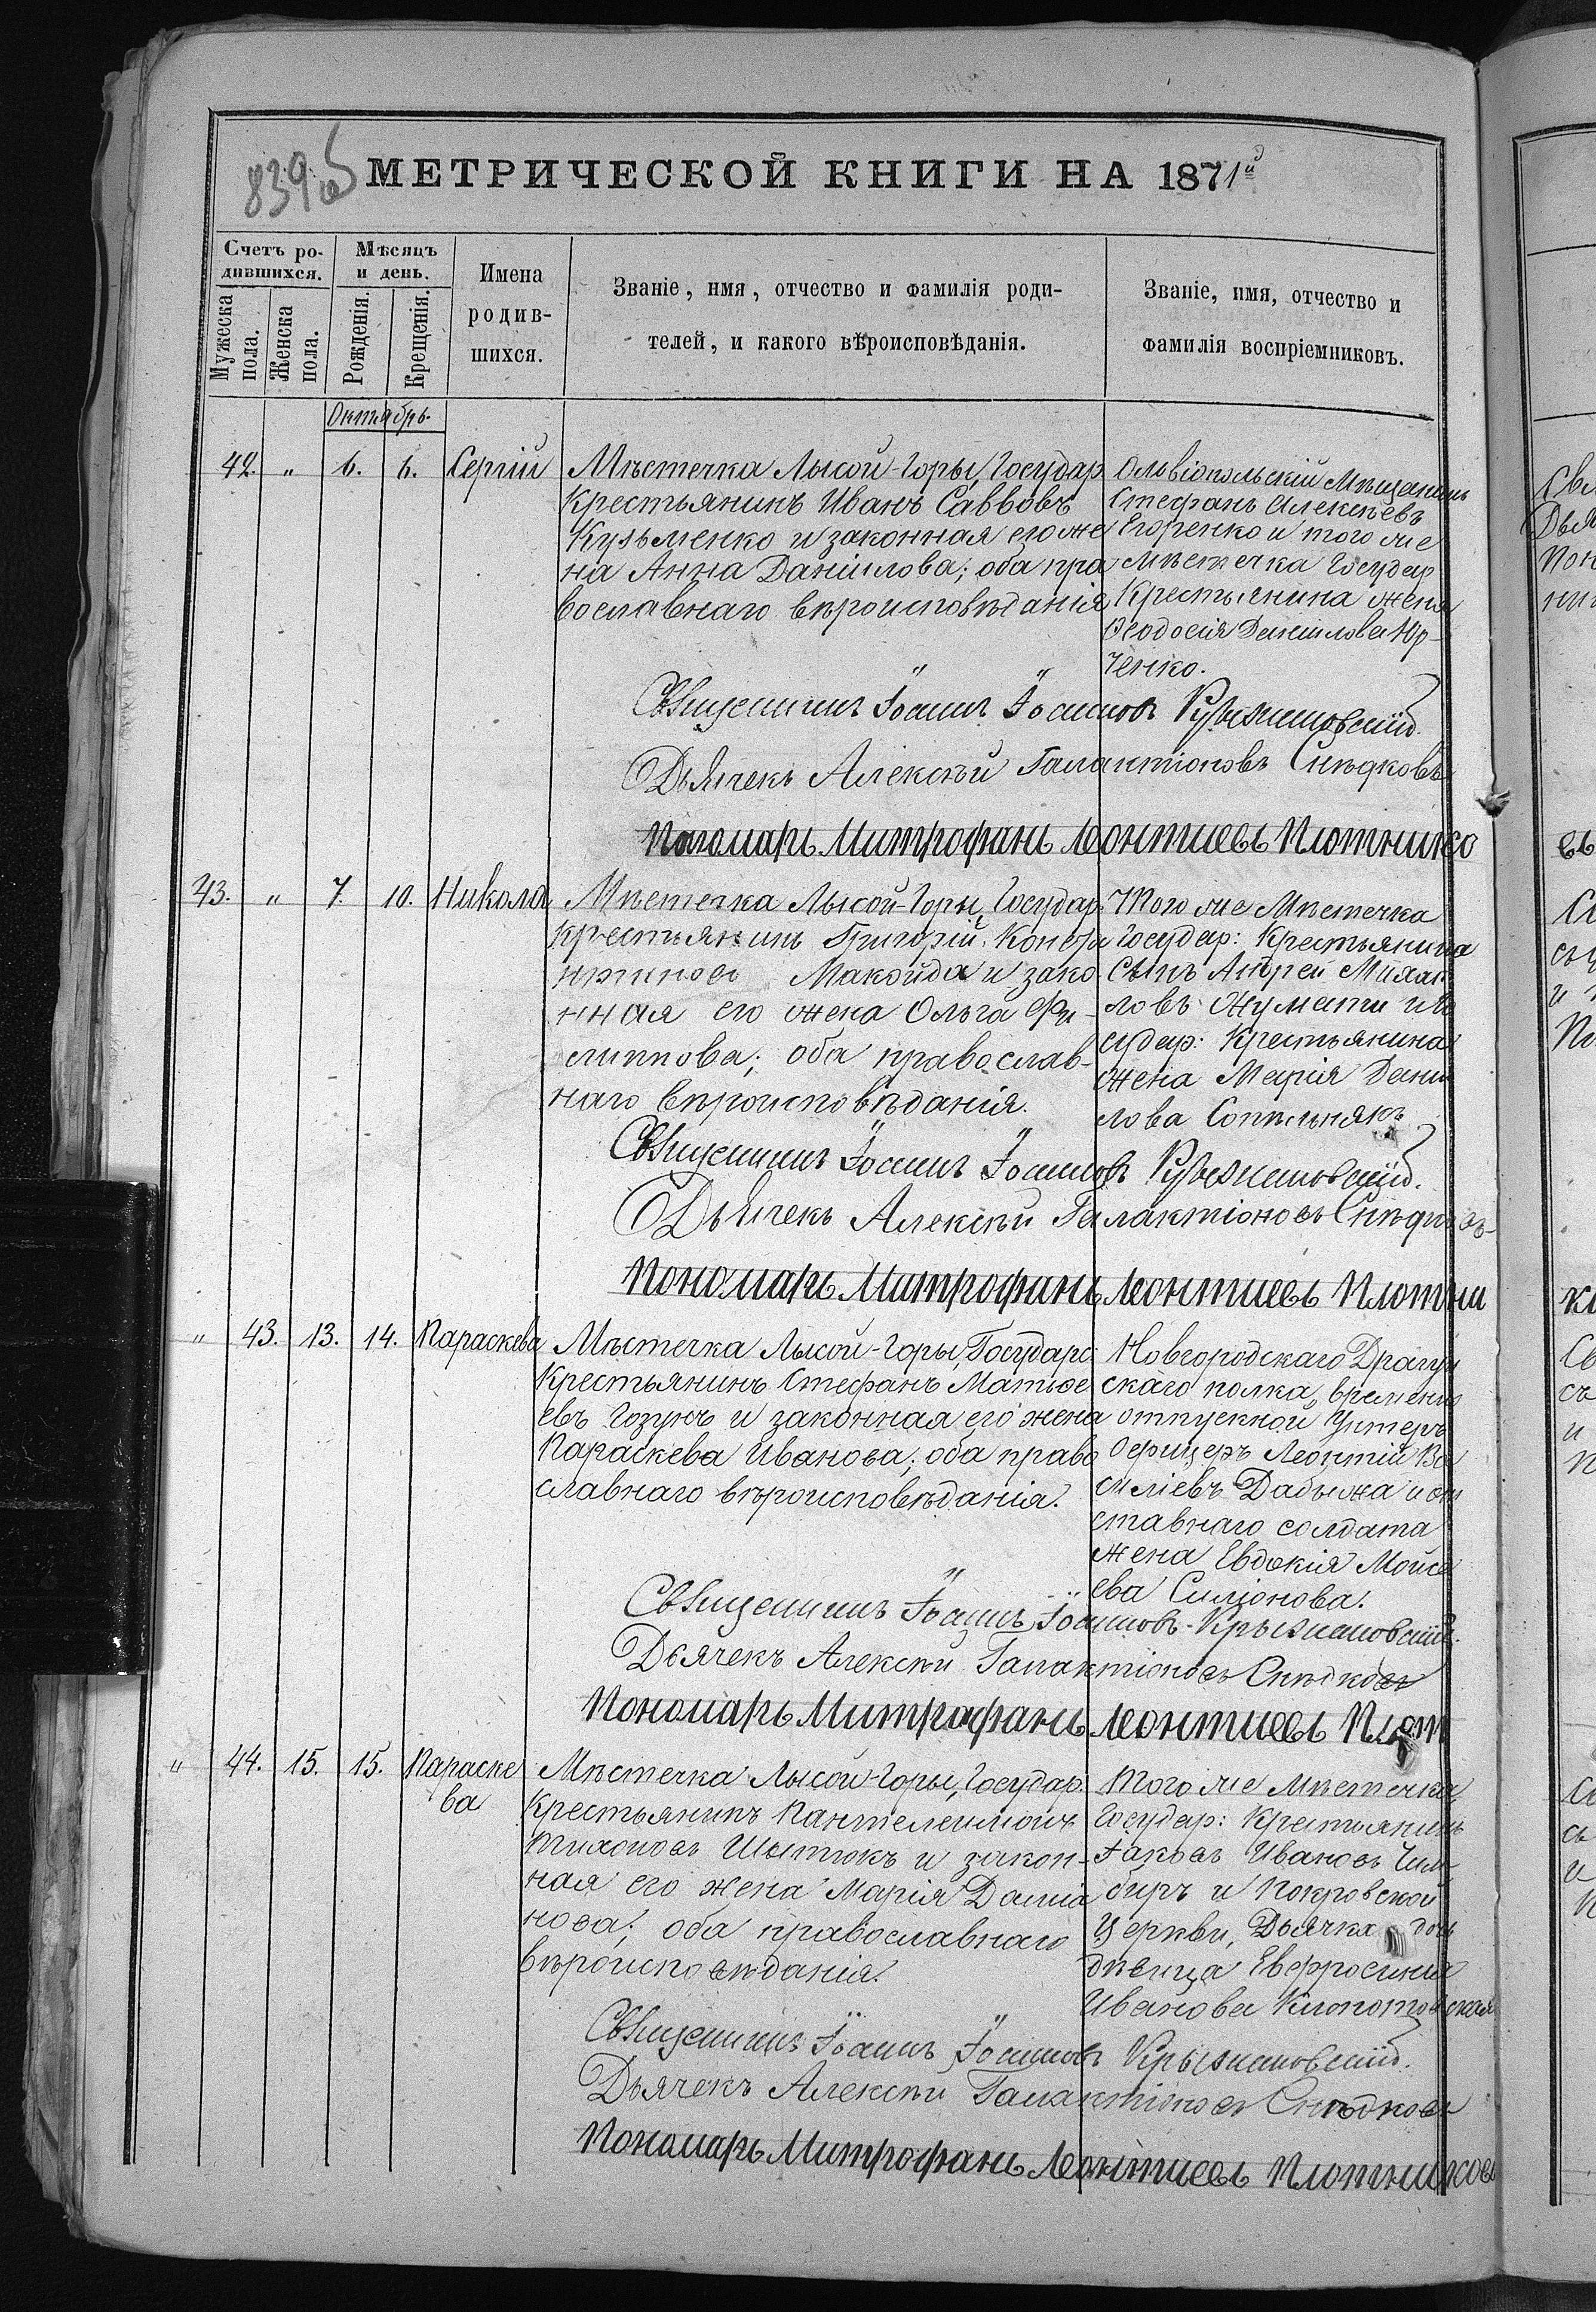 839об
МЕТРИЧЕСКОЙ КНИГИ НА 1871й
Счетъ ро-
дившихся.
Мужеска пола.
Женска пола.
Мѣсяцъ
и день.
Рожденія.
Крещенія.
Имена
родив-
шихся.
Званіе, имя, отчество и фамилія роди-
телей, и какого вѣроисповѣданія.
Званіе, имя, отчество и
фамилія воспріемниковъ.
Октябрь.
42. " 6. 6. Сергій
Мѣстечка Лысой-Горы, Государ
Крестьянинъ Иванъ Саввовъ
Кузьменко и законная его же
на Анна Даніилова; оба пра
вославнаго вѣроисповѣданія
Ольвіопольскій Мѣщанинъ
Стефанъ Алексѣевъ
Егоренко и того же
Мѣстечка Государ
Крестьянина жена
Ѳеодосія Даніилова Юр-
ченко.
Священникъ Іоаннъ Іоанновъ Крыжановскій.
Дьячекъ Алексѣй Галактіоновъ Снѣдковъ
Пономарь Митрофанъ Леонтиевъ Плотнико
43. " 7. 10. Никола
Мѣстечка Лысой-Горы, Государ.
Крестьянинъ Григорій Конста
нтиновъ Макойда и зако
нная его жена Ольга Фи-
липпова; оба православ-
наго вѣроисповѣданія.
Того же Мѣстечка
Государ: Крестьянина
сынъ Андрей Михаи
ловъ и Го
судар: Крестьянина
жена Марія Дани
лова Сопильнякъ
Священникъ Іоаннъ Іоанновъ Крыжановскій.
Дьячекъ Алексѣй Галактіоновъ Снѣдковъ
Пономарь Митрофанъ Леонтиевъ Плотни
" 43. 13. 14. Параскева
Мѣстечка Лысой-Горы, Государс
Крестьянинъ Стефанъ Матѳе
евъ Гозунъ и законная его жена
Параскева Иванова; оба право
славнаго вѣроисповѣданія.
Новгородскаго Драгун
скаго полка, времено
отпускной Унтеръ
Офицеръ Леонтій Ва
силіевъ Дабыжа и от
ставнаго солдата
жена Евдокія Мойсе
ева Силіонова.
Священникъ Іоаннъ Іоанновъ Крыжановскій.
Дьячекъ Алексѣй Галактіоновъ Снѣдковъ
Пономарь Митрофанъ Леонтиевъ Плот
" 44. 15. 15. Параске
ва
Мѣстечка Лысой-Горы, Государ.
Крестьянинъ Пантелеимонъ
Тихоновъ Шестюкъ и закон-
ная его жена Марія Даміа
нова; оба православнаго
вѣроисповѣданія.
Того же Мѣстечка
Государ: Крестьянинъ
Іаковъ Ивановъ Чим
биръ и Покровской
Церкви, Дьячка дочь
дѣвица Евфросинія
Иванова Клопотовская
Священникъ Іоаннъ Іоанновъ Крыжановскій.
Дьячекъ Алексѣй Галактіоновъ Снѣдковъ
Пономарь Митрофанъ Леонтиевъ Плотниковъ